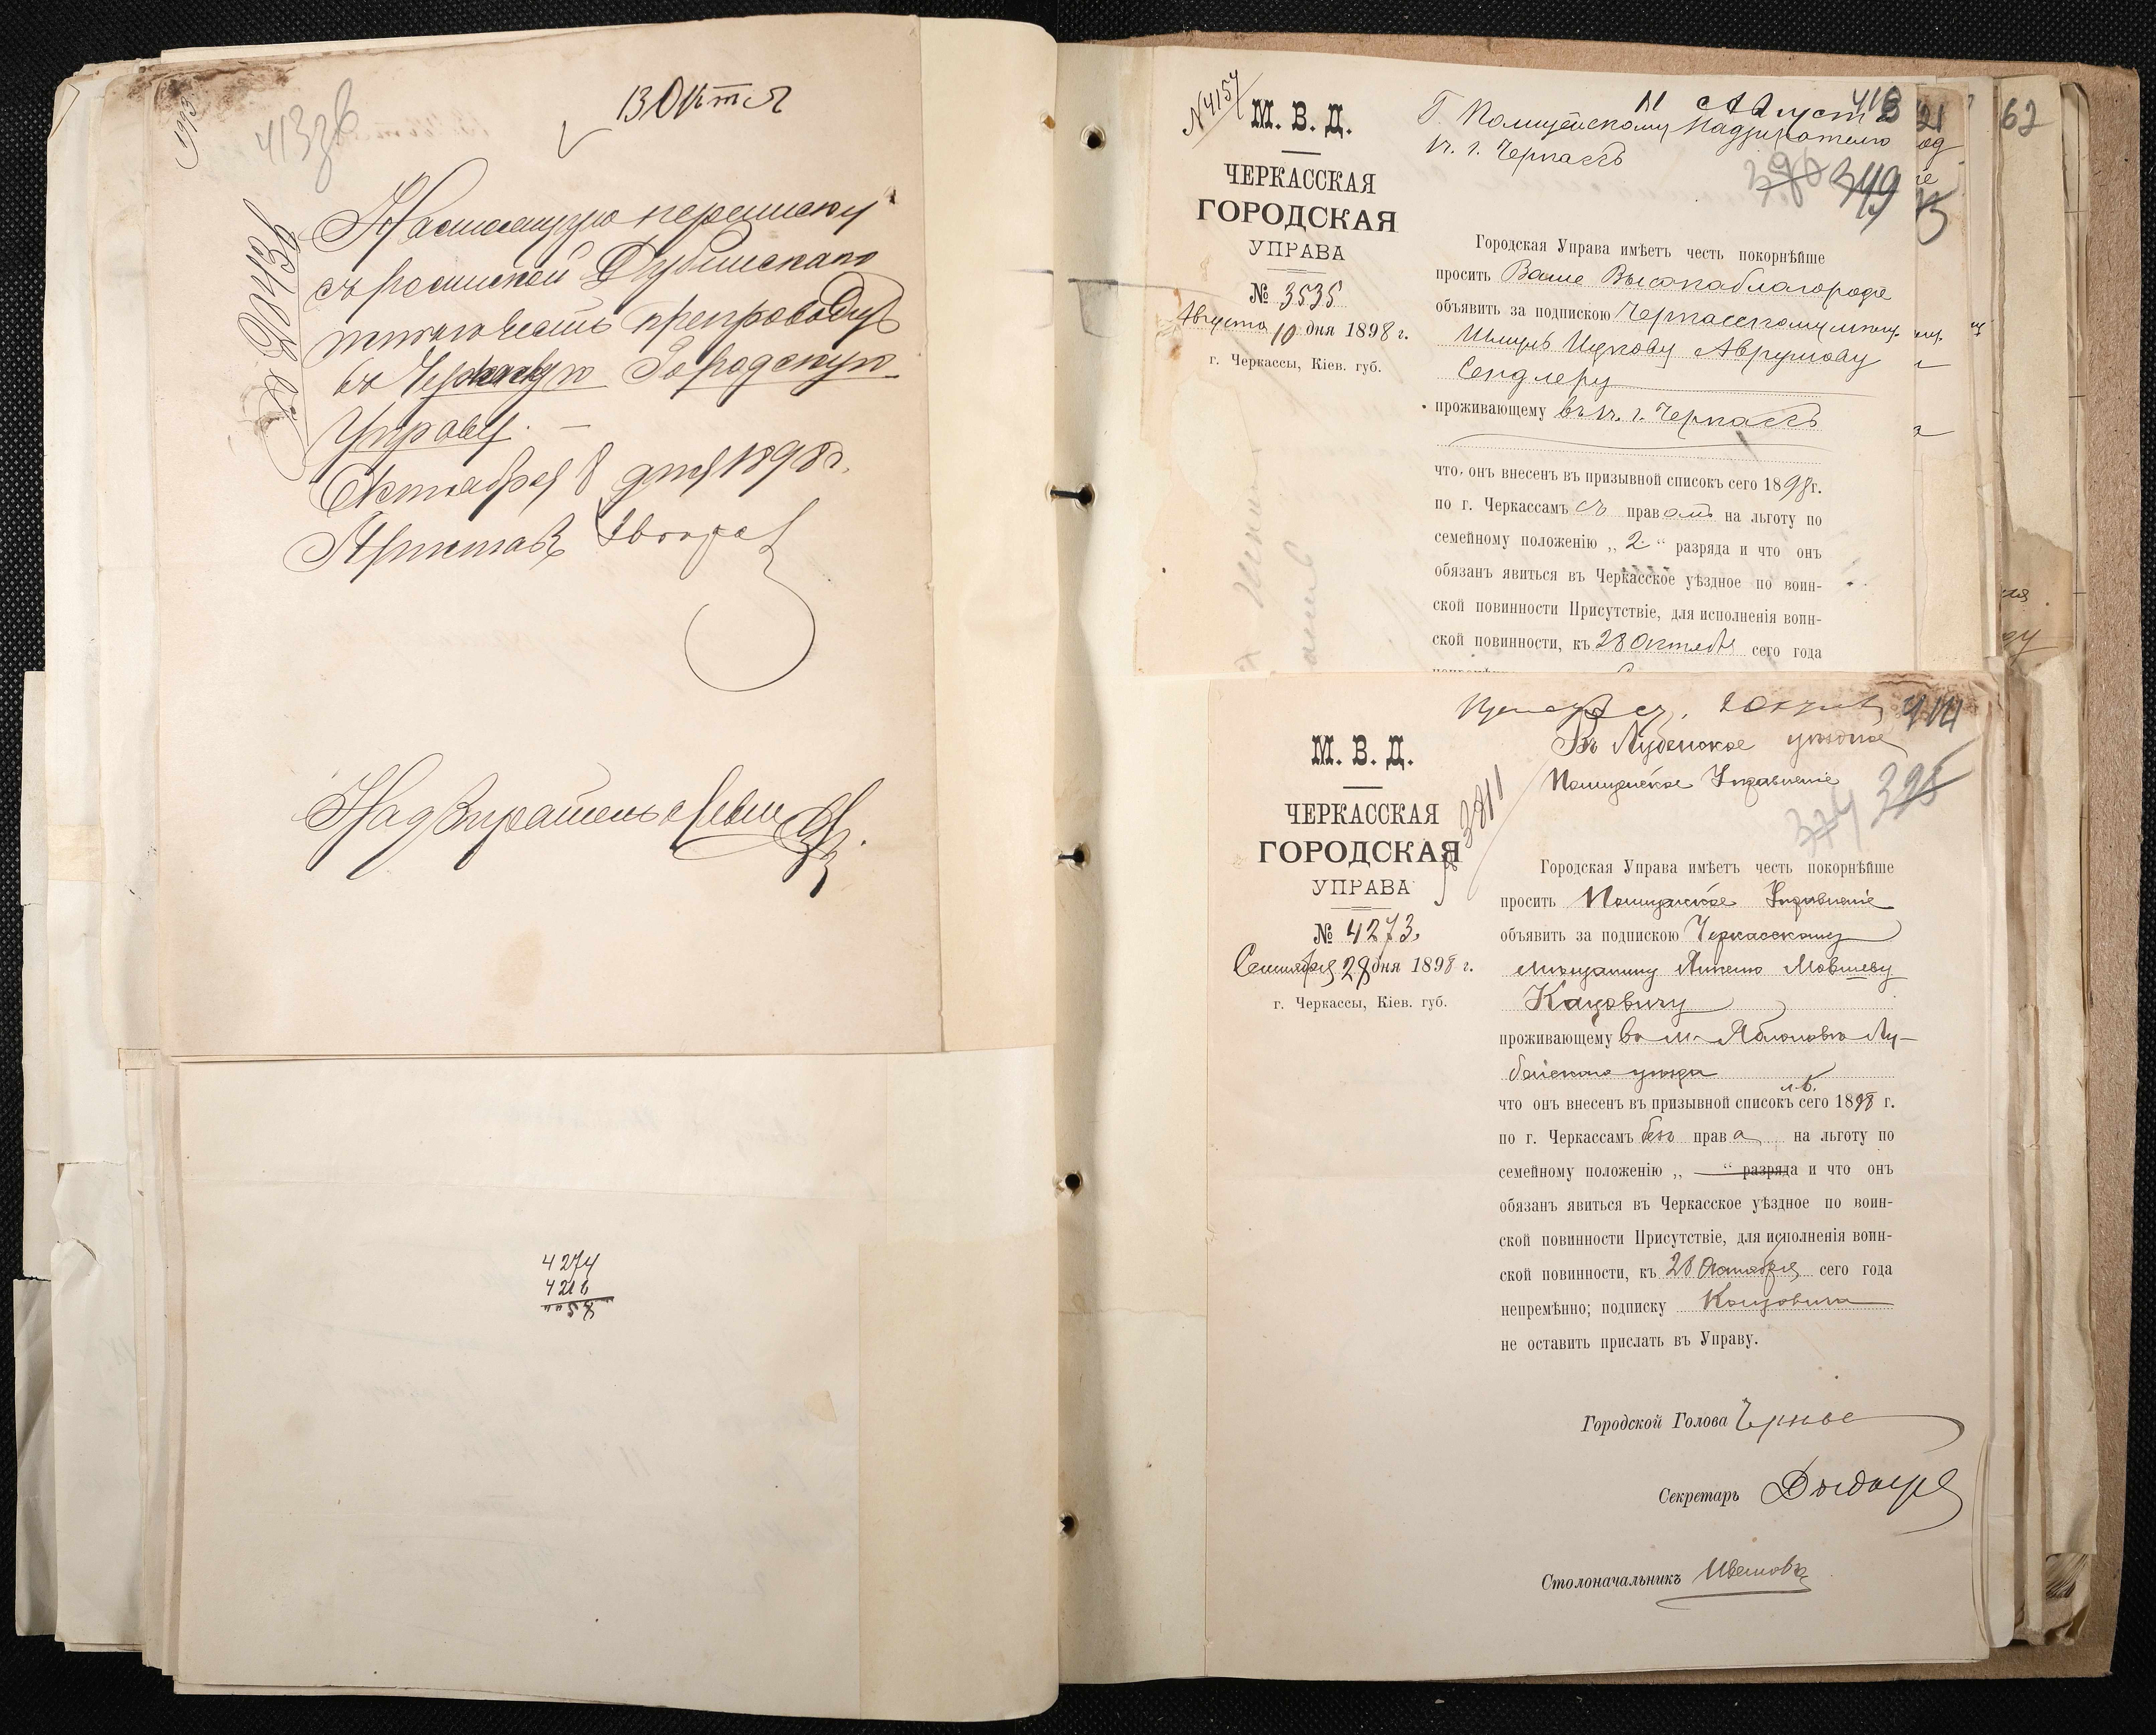 413 об
13 Октя
Настоящую переписку
съ роспиской Дубинскаго
въ Черкасскую Городскую
Управу. —
Октября 8 дня 1898 г.
Приставъ
Надзиратель
4274
4216
""58
N 4154
М. В. Д.
ЧЕРКАССКАЯ
ГОРОДСКАЯ
УПРАВА
№ 3535
Августа 10 дня 1898 г.
г. Черкассы, Кіев. губ.
11 Август
Г. Полицейскому Надзирателю
г. Черкассъ
396 349
Городская Управа имѣетъ честь покорнѣйше
просить Ваше Высокоблагородіе
объявить за подпискою Черкасскому мѣщ.
Шмулъ Ицкову Аврумову
Сендлеру
проживающему въ г. Черкассъ
что онъ внесенъ въ призывной списокъ сего 1898 г.
по г. Черкассамъ съ правомъ на льготу по
семейному положенію „2“ разряда и что онъ
обязанъ явиться въ Черкасское уѣздное по воин-
ской повинности Присутствіе, для исполненія воин-
ской повинности, къ 28 Октября сего года
21
62
414
М. В. Д.
ЧЕРКАССКАЯ
ГОРОДСКАЯ
УПРАВА
№ 4273.
Сентября 28 дня 1898 г.
г. Черкассы, Кіев. губ.
3811
Въ Лубенское уѣздное
Полицейское Управленіе
374 395
Городская Управа имѣетъ честь покорнѣйше
просить Полицейское Управленіе
объявить за подпискою Черкасскому
мѣщанину Мовшеву
Кацовичу
проживающему въ м. Яблоновѣ Лу-
бенскаго уѣзда
что онъ внесенъ въ призывной списокъ сего 1898 г.
по г. Черкассамъ безъ права на льготу по
семейному положенію „—“ разряда и что онъ
обязанъ явиться въ Черкасское уѣздное по воин-
ской повинности Присутствіе, для исполненія воин-
ской повинности, къ 28 Октября сего года
непремѣнно; подписку Кацовича
не оставить прислать въ Управу.
Городской Голова
Секретарь
Столоначальникъ